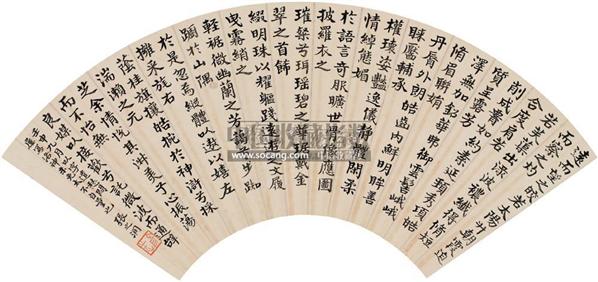 遠而望之皎若太陽升朝霞迫
而察之灼
若芙蕖出渌波襛纖得中脩短
合度肩若
削成腰如約素延頸秀項皓
質呈露芳
澤無加鉛華弗御雲髻峨峨
脩眉聯娟
丹脣外朗皓齒內鮮明眸善
睞靨輔承
權瓌姿豔逸儀靜體閑柔
情綽態媚
於語言奇服曠世骨像應圖
披羅衣之
璀粲兮珥瑤碧之華琚戴金
翠之首飾
綴明珠以耀軀踐遠遊之文履
曳霧綃之
輕裾微幽蘭之芳藹兮步踟
躕於山隅
於是忽焉縱體以遨以嬉左
倚采旄右
蔭桂旗攘皓腕於神滸兮採
湍瀨之玄
芝余情悅其淑美兮心振蕩
而不怡無
良媒以接歡兮託微波而通辭
壬申
張之洞
www.socang.com